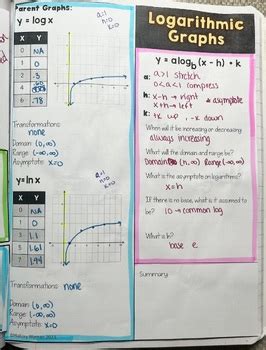 Parent Graphs:
y = log x
a=1
x>1
X Y
0 NA
1 0
2 .3
4
6 .78
Transformations:
none
Domain: (0,∞)
Range: (-∞,∞)
Asymptote: x=0
y=ln x
X Y
0 NA
1 0
3 1.1
5 1.61
7 1.94
Transformations: none
Domain: (0,∞)
Range: (-∞,∞)
Asymptote: x=0
Logarithmic
Graphs
y = alog_b (x - h) + k
a: a>1 stretch
0<a<1 compress
h: x-h → right
x+h → left
asymptote
k: +k up, -k down
When will it be increasing or decreasing?
always increasing
What will the domain and range be?
Domain: (h,∞) Range (-∞,∞)
What is the asymptote on logarithms?
x=h
If there is no base, what is it assumed to
be? 10 → common log
What is ln?
base e
Summary: